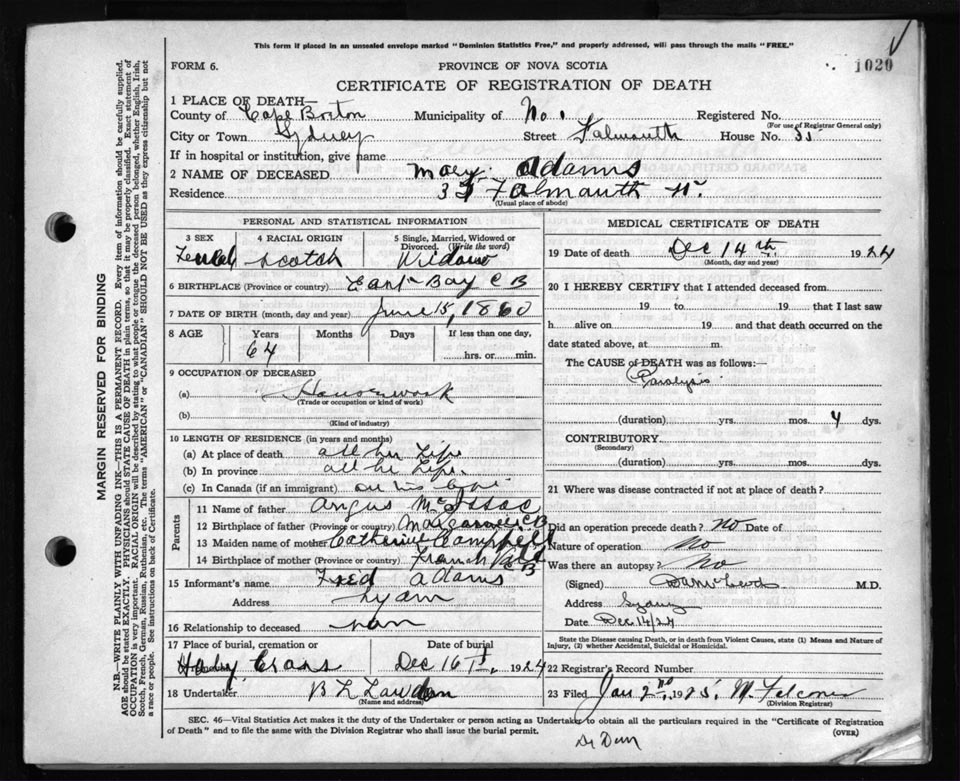 This form if placed in an unsealed envelope marked "Dominion Statistics Free," and properly addressed, will pass through the mails "FREE."
1020
FORM 6.
PROVINCE OF NOVA SCOTIA
CERTIFICATE OF REGISTRATION OF DEATH
1 PLACE OF DEATH—
County of Cape Breton Municipality of No. 1 Registered No.
(For use of Registrar General only)
City or Town Sydney Street Falmouth House No. 35
If in hospital or institution, give name
2 NAME OF DECEASED Mary Adams
Residence 35 Falmouth St.
(Usual place of abode)
PERSONAL AND STATISTICAL INFORMATION
3 SEX 4 RACIAL ORIGIN 5 Single, Married, Widowed or Divorced. (Write the word)
Scotch
6 BIRTHPLACE (Province or country) East Bay C B
7 DATE OF BIRTH (month, day and year) June 15, 1860
8 AGE Years Months Days If less than one day,
64 hrs. or min.
9 OCCUPATION OF DECEASED
(a) Housework
(Trade or occupation or kind of work)
(b)
(Kind of industry)
10 LENGTH OF RESIDENCE (in years and months)
(a) At place of death all her Life
(b) In province all he Life
(c) In Canada (if an immigrant)
Parents
11 Name of father Angus McIssac
12 Birthplace of father (Province or country) C B
13 Maiden name of mother Catherine Campbell
14 Birthplace of mother (Province or country) C B
15 Informant's name Fred Adams
Address
16 Relationship to deceased
17 Place of burial, cremation or Date of burial
Holy Cross Dec 16th. 1924
18 Undertaker B L
(Name and address)
MEDICAL CERTIFICATE OF DEATH
19 Date of death Dec 14th. 1924
(Month, day and year)
20 I HEREBY CERTIFY that I attended deceased from
19 to 19 that I last saw
h alive on 19 and that death occurred on the
date stated above, at m.
The CAUSE of DEATH was as follows:
Paralysis
(duration) yrs. mos. 4 dys.
CONTRIBUTORY
(Secondary)
(duration) yrs. mos. dys.
21 Where was disease contracted if not at place of death?
Did an operation precede death? No Date of
Nature of operation No
Was there an autopsy? No
(Signed) M.D.
Address Sydney
Date Dec 14/24
State the Disease causing Death, or in death from Violent Causes, state (1) Means and Nature of Injury, (2) whether Accidental, Suicidal or Homicidal.
22 Registrar's Record Number
23 Filed Jan 2nd, 1925. M. Falconer
(Division Registrar)
SEC. 46—Vital Statistics Act makes it the duty of the Undertaker or person acting as Undertaker to obtain all the particulars required in the "Certificate of Registration
of Death" and to file the same with the Division Registrar who shall issue the burial permit. (OVER)
MARGIN RESERVED FOR BINDING
N.B.—WRITE PLAINLY WITH UNFADING INK—THIS IS A PERMANENT RECORD. Every item of information should be carefully supplied.
AGE should be stated EXACTLY. PHYSICIANS should STATE CAUSE OF DEATH in plain terms, so that it may be properly classified. Exact statement of
OCCUPATION is very important. RACIAL ORIGIN will be described by stating to what people or tongue the deceased person belonged, whether English, Irish,
Scotch, French, German, Russian, Ruthenian, etc. The terms "AMERICAN" or "CANADIAN" SHOULD NOT BE USED as they express citizenship but not
a race or people. See instructions on back of Certificate.